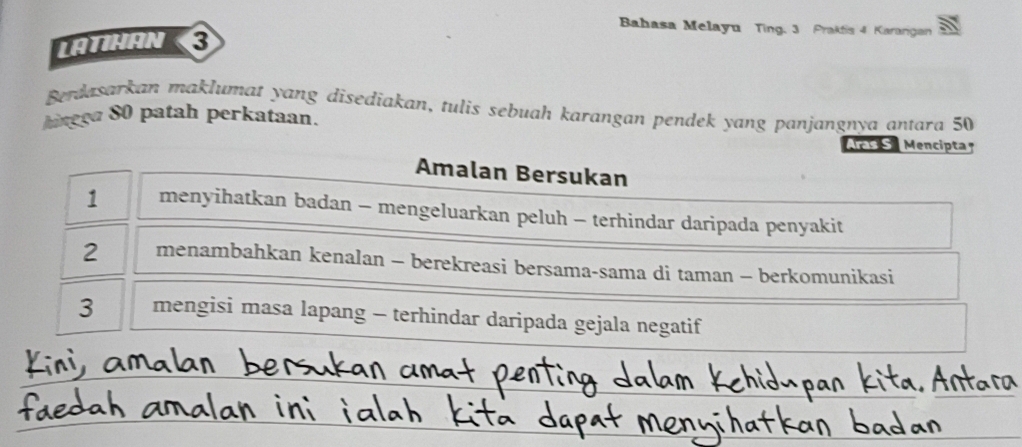 Bahasa Melayu Ting. 3 Praktis 4 Karangan
LATIHAN 3
Berdasarkan maklumat yang disediakan, tulis sebuah karangan pendek yang panjangnya antara 50
hingga 80 patah perkataan.
Aras S Mencipta
Amalan Bersukan
1 menyihatkan badan – mengeluarkan peluh – terhindar daripada penyakit
2 menambahkan kenalan – berekreasi bersama-sama di taman – berkomunikasi
3 mengisi masa lapang – terhindar daripada gejala negatif
Kini, amalan bersukan amat penting dalam kehidupan kita. Antara
faedah amalan ini ialah kita dapat menyihatkan badan